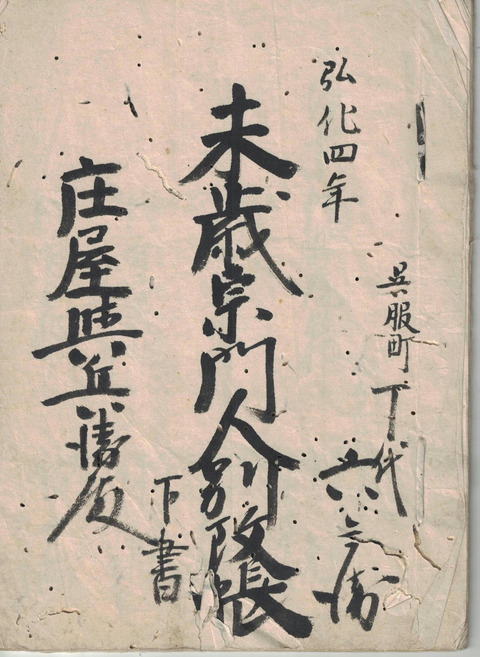 呉服町丁代
弘化四年
未歳宗門人別改帳
下書
庄屋與兵衛